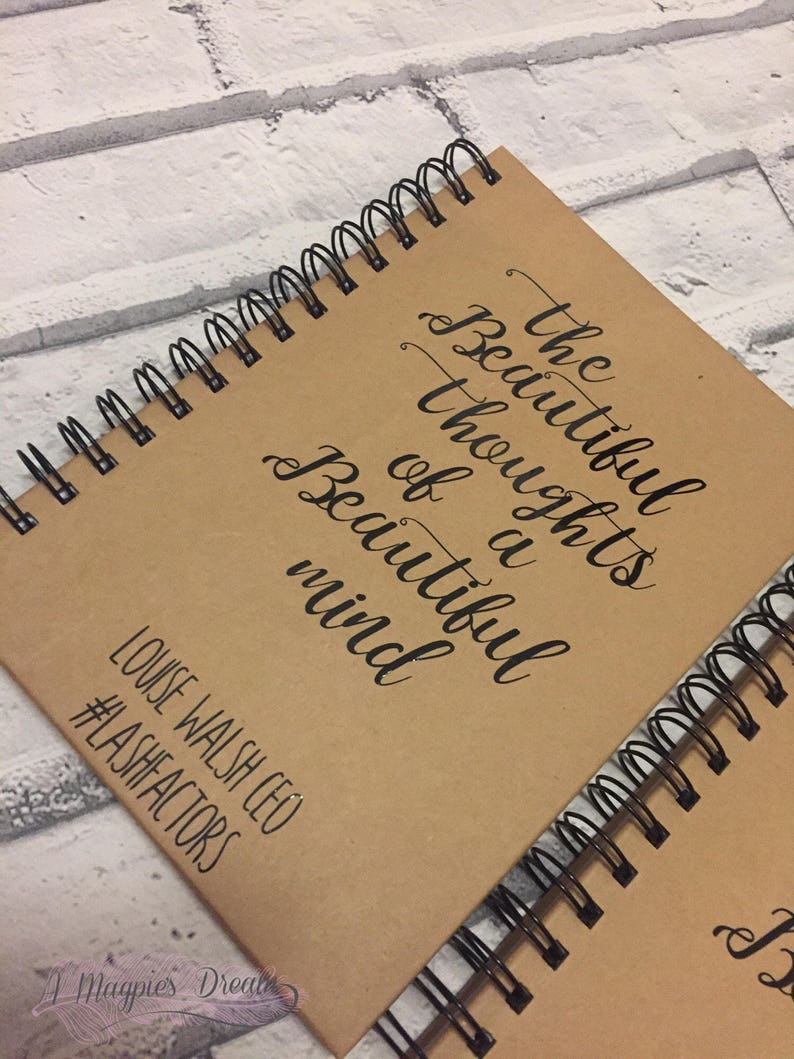 the
Beautiful
thoughts
of a
Beautiful
mind
LOUISE WALSH CEO
#LASHFACTORS
A Magpie's Dream